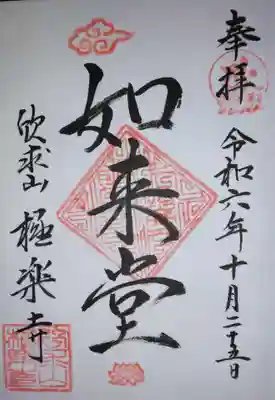 奉拝
令和六年十月二十五日
如来堂
欣求山 極楽寺